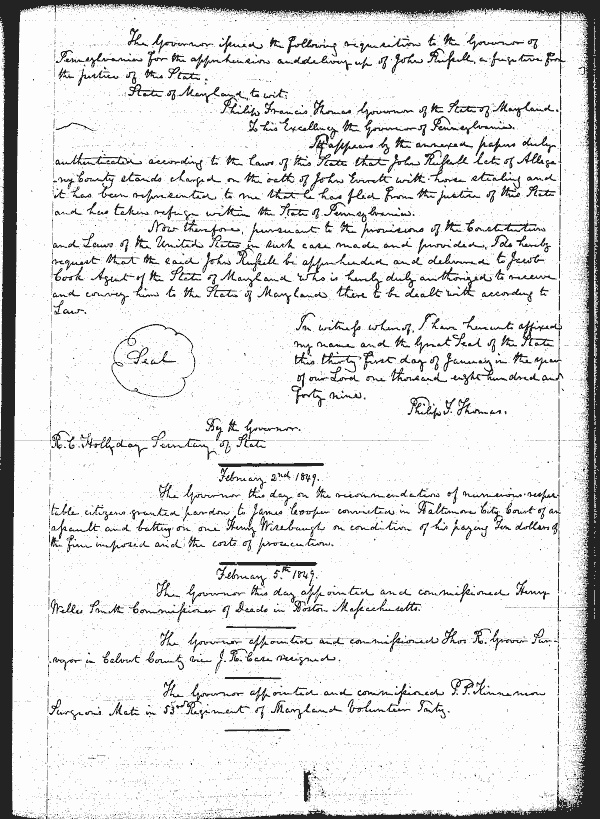 The Governor issued the following requisition to the Governor of
Pennsylvania for the apprehension and delivery up of John Russell, a fugitive from
the justice of this State.
State of Maryland, to wit:
Philip Francis Thomas Governor of the State of Maryland.
To his Excellency the Governor of Pennsylvania.
It appears by the annexed papers duly
authenticated according to the laws of this State that John Russell late of Allega
ny County stands charged on the oath of John Everett with horse stealing and
it has been represented to me that he has fled from the justice of this State
and has taken refuge within the State of Pennsylvania.
Now therefore, pursuant to the provisions of the Constitution
and Laws of the United States in such case made and provided, I do hereby
request that the said John Russell be apprehended and delivered to Jacob
Cook Agent of the State of Maryland who is hereby duly authorized to receive
and convey him to the State of Maryland there to be dealt with according to
Law.
Seal
In witness whereof, I have hereunto affixed
my name and the Great Seal of the State
this thirty first day of January in the year
of our Lord one thousand eight hundred and
forty nine.
Philip F. Thomas.
By the Governor.
R. C. Hollyday Secretary of State
February 2nd 1849.
The Governor this day on the recommendation of numerous respec
table citizens granted pardon to James Cooper convicted in Baltimore City Court of an
assault and battery on one Henry Wisebaugh on condition of his paying Ten dollars of
the fine imposed and the costs of prosecution.
February 5th 1849.
The Governor this day appointed and commissioned Henry
Willis Smith Commissioner of Deeds in Boston Massachusetts.
The Governor appointed and commissioned Thos R. Grover Sur-
veyor in Calvert County vice J. R. Case resigned.
The Governor appointed and commissioned P. P. Kinnemon
Surgeon's Mate in 53rd Regiment of Maryland Volunteer